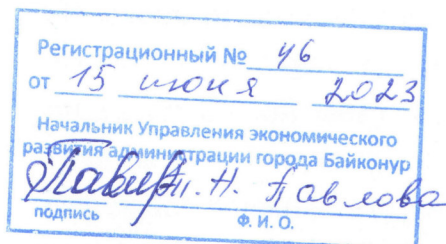 Регистрационный № 46
от 15 июня 2023
Начальник Управления экономического
развития администрации города Байконур
Т. Н. Павлова
подпись Ф. И. О.